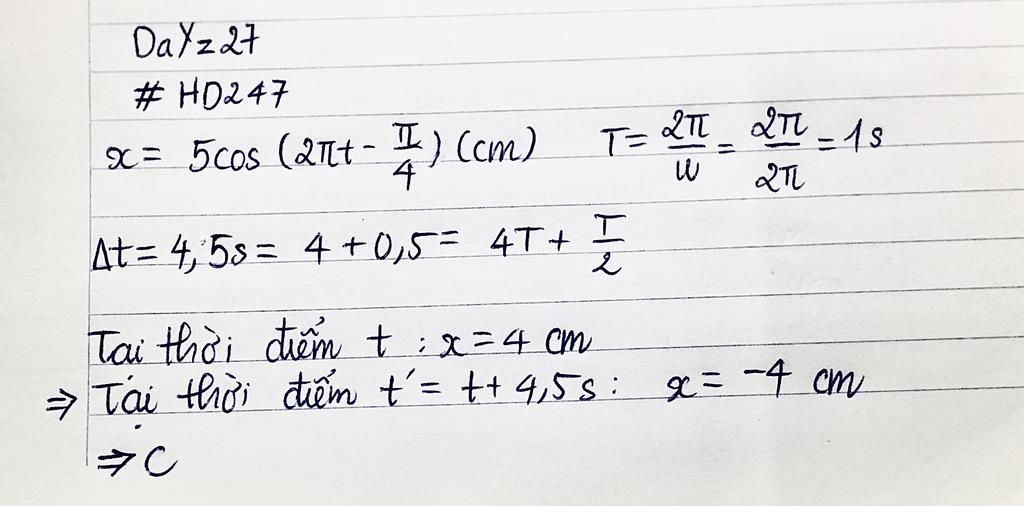 DaYz27
# HD247
x = 5cos (2πt - π/4) (cm) T = 2π/ω = 2π/2π = 1s
Δt = 4,5s = 4 + 0,5 = 4T + T/2
Tại thời điểm t : x = 4 cm
⇒ Tại thời điểm t' = t + 4,5s : x = -4 cm
⇒ C